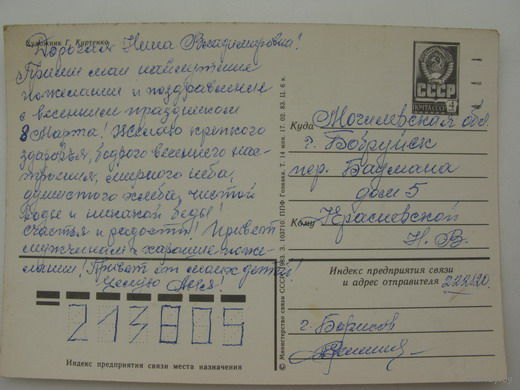 Художник Г. Куртенко
Дорогая Нина Владимировна!
Прими мои найлучшие
пожелания и поздравления
с весенним праздником
8 Марта! Желаю крепкого
здоровья, бодрого весеннего нас-
троения, мирного неба,
душистого хлеба, чистой
воды и никакой беды!
Счастья и радости! Привет
мужчинам и хорошие поже-
лания! Привет от моих детей!
Целую
213805
Индекс предприятия связи места назначения
© Министерство связи СССР. 1983. З. 103710. ППФ Гознака. Т. 14 млн. 17. 02. 83. Ц. 6 к.
СССР
ПОЧТА СССР
4
Куда Могилевская обл.
г. Бобруйск
пер. Баумана
дом 5
Кому Красневской
Н. В.
Индекс предприятия связи
и адрес отправителя 222120
г. Борисов